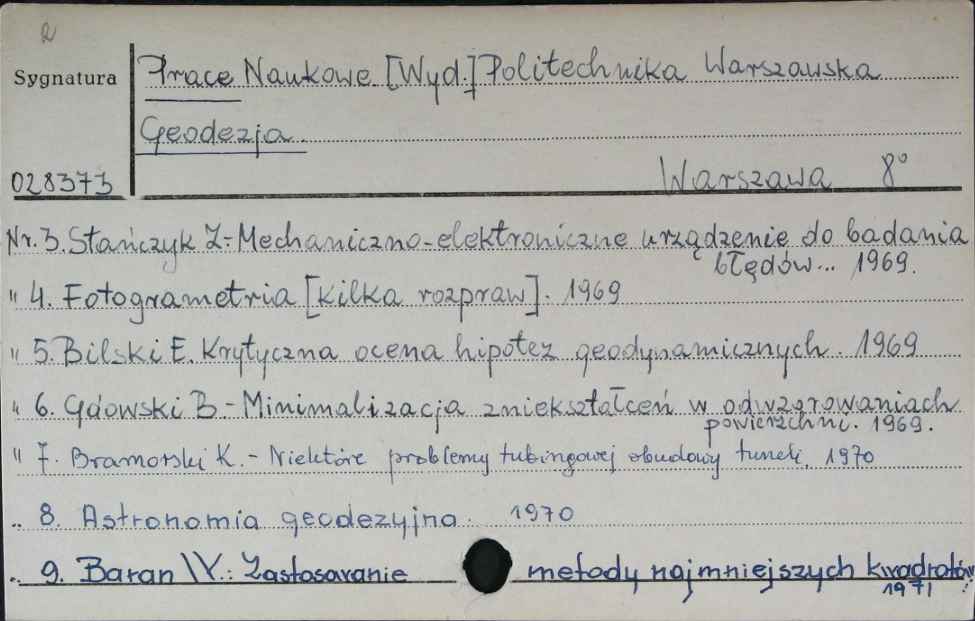 2
Sygnatura
Prace Naukowe [Wyd.] Politechnika Warszawska
Geodezja.
028373
Warszawa 8°
Nr. 3. Stańczyk Z-Mechaniczno-elektroniczne urządzenie do badania
błędów... 1969.
" 4. Fotogrametria [kilka rozpraw]. 1969
" 5. Bilski E. Krytyczna ocena hipotez geodynamicznych. 1969
" 6. Gdowski B-Minimalizacja zniekształceń w odwzorowaniach
powierzchni. 1969.
" 7. Bramorski K.- Niektóre problemy tubingowej obudowy tuneli. 1970
" 8. Astronomia geodezyjna. 1970
" 9. Baran W.: Zastosowanie metody najmniejszych kwadratów
1971